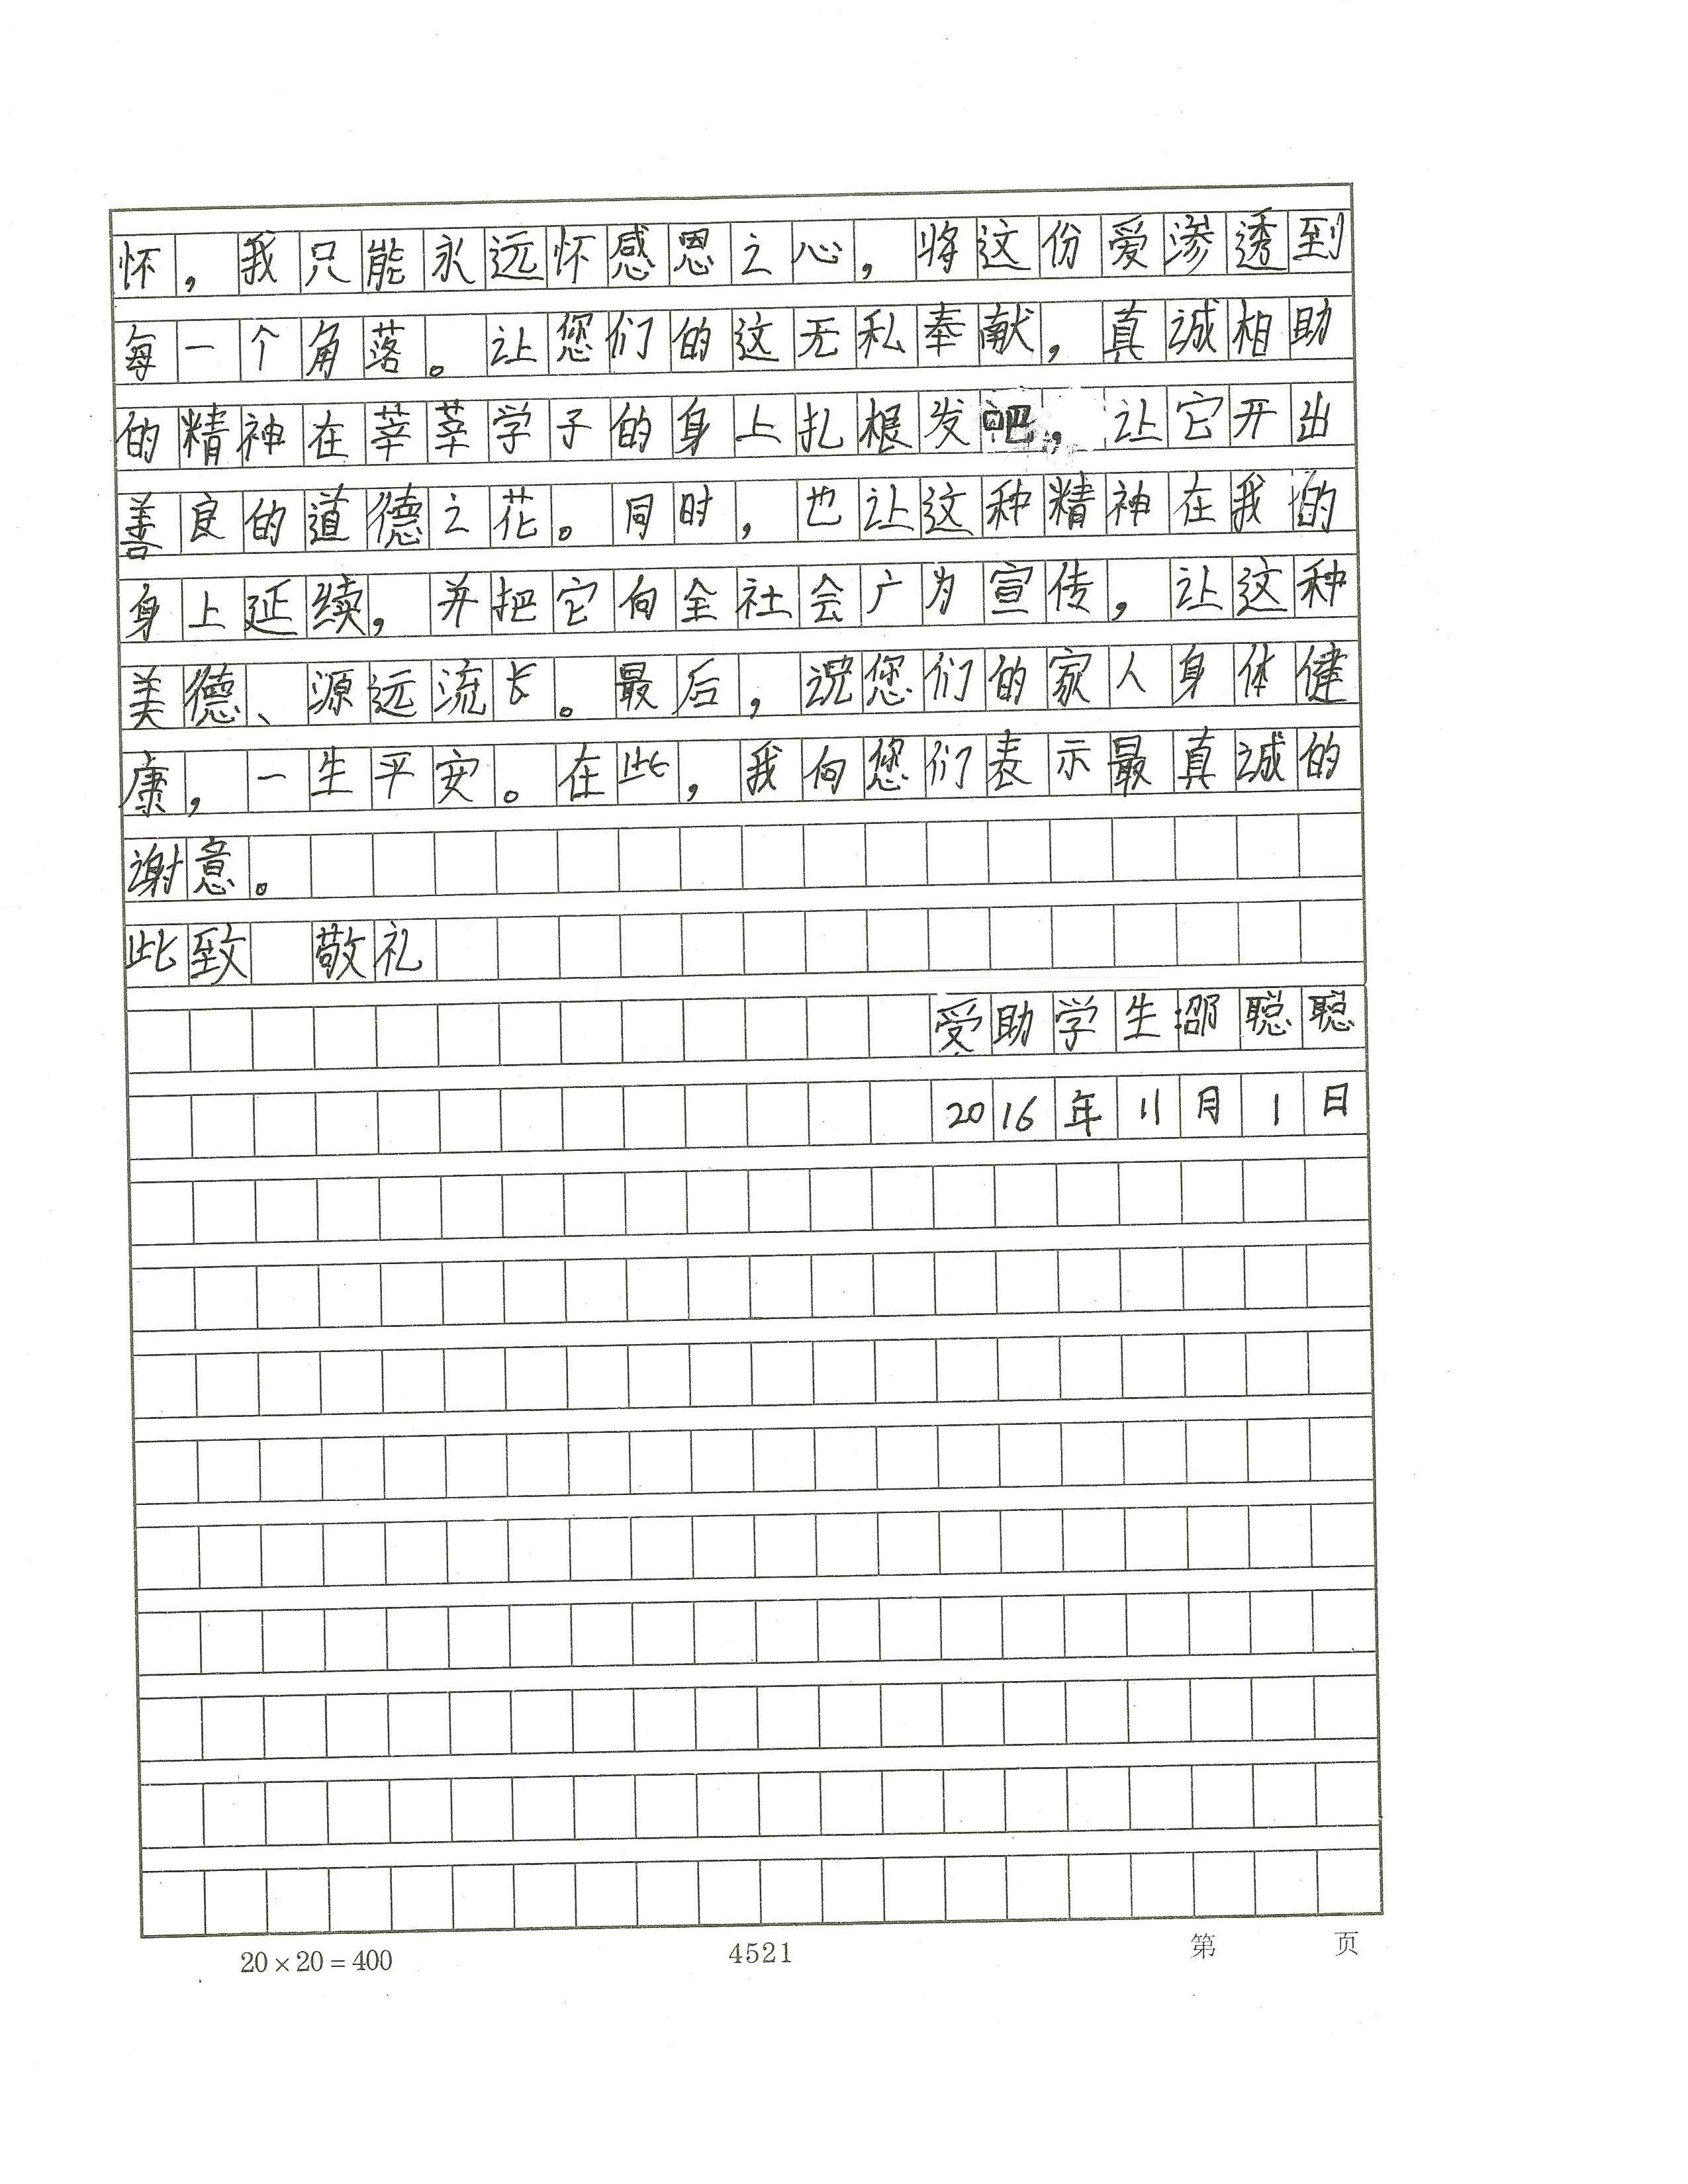 怀，我只能永远怀感恩之心，将这份爱渗透到
每一个角落。让您们的这无私奉献，真诚相助
的精神在莘莘学子的身上扎根发吧，让它开出
善良的道德之花。同时，也让这种精神在我的
身上延续，并把它向全社会广为宣传，让这种
美德、源远流长。最后，说您们的家人身体健
康，一生平安。在此，我向您们表示最真诚的
谢意。
此致 敬礼
受助学生:邵聪聪
2016年11月1日
20×20=400 4521 第 页